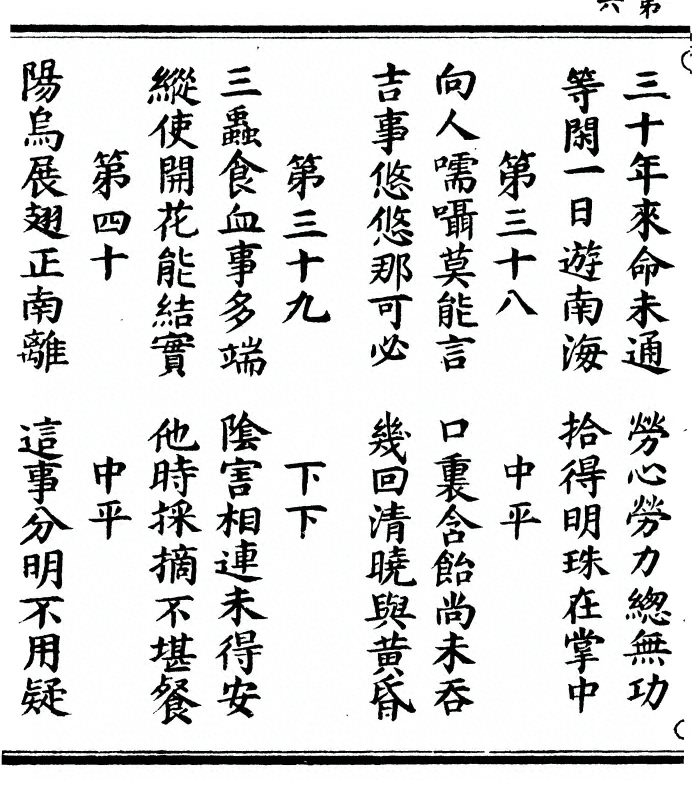 三十年來命未通 勞心勞力總無功
等閑一日遊南海 拾得明珠在掌中
第三十八 中平
向人嚅囁莫能言 口裏含飴尚未吞
吉事悠悠那可必 幾回清曉與黃昏
第三十九 下下
三蟲食血事多端 陰害相連未得安
縱使開花能結實 他時採摘不堪餐
第四十 中平
陽烏展翅正南離 這事分明不用疑